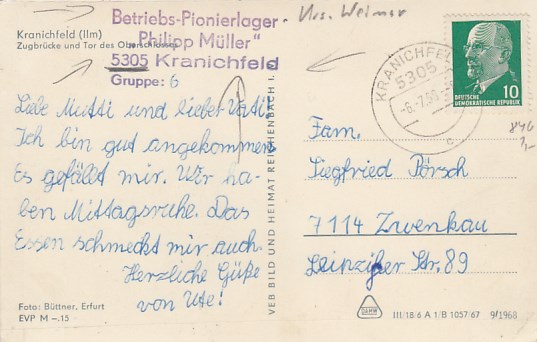 Betriebs-Pionierlager
"Philipp Müller"
5305 Kranichfeld
Gruppe: 6
Krs. Weimar
Kranichfeld (Ilm)
Zugbrücke und Tor des Oberschlosses
Liebe Mutti und lieber Vati!
Ich bin gut angekommen
Es gefällt mir. Wir ha-
ben Mittagsruhe. Das
Essen schmeckt mir auch.
Herzliche Güße
von Ute!
Foto: Büttner, Erfurt
EVP M –.15
VEB BILD UND HEIMAT REICHENBACH I.
KRANICHFELD
5305
c
10
DEUTSCHE
DEMOKRATISCHE REPUBLIK
846
Fam.
Siegfried Pörsch
7114 Zwenkau
Leipziger Str. 89
III/18/6 A 1/B 1057/67 9/1968